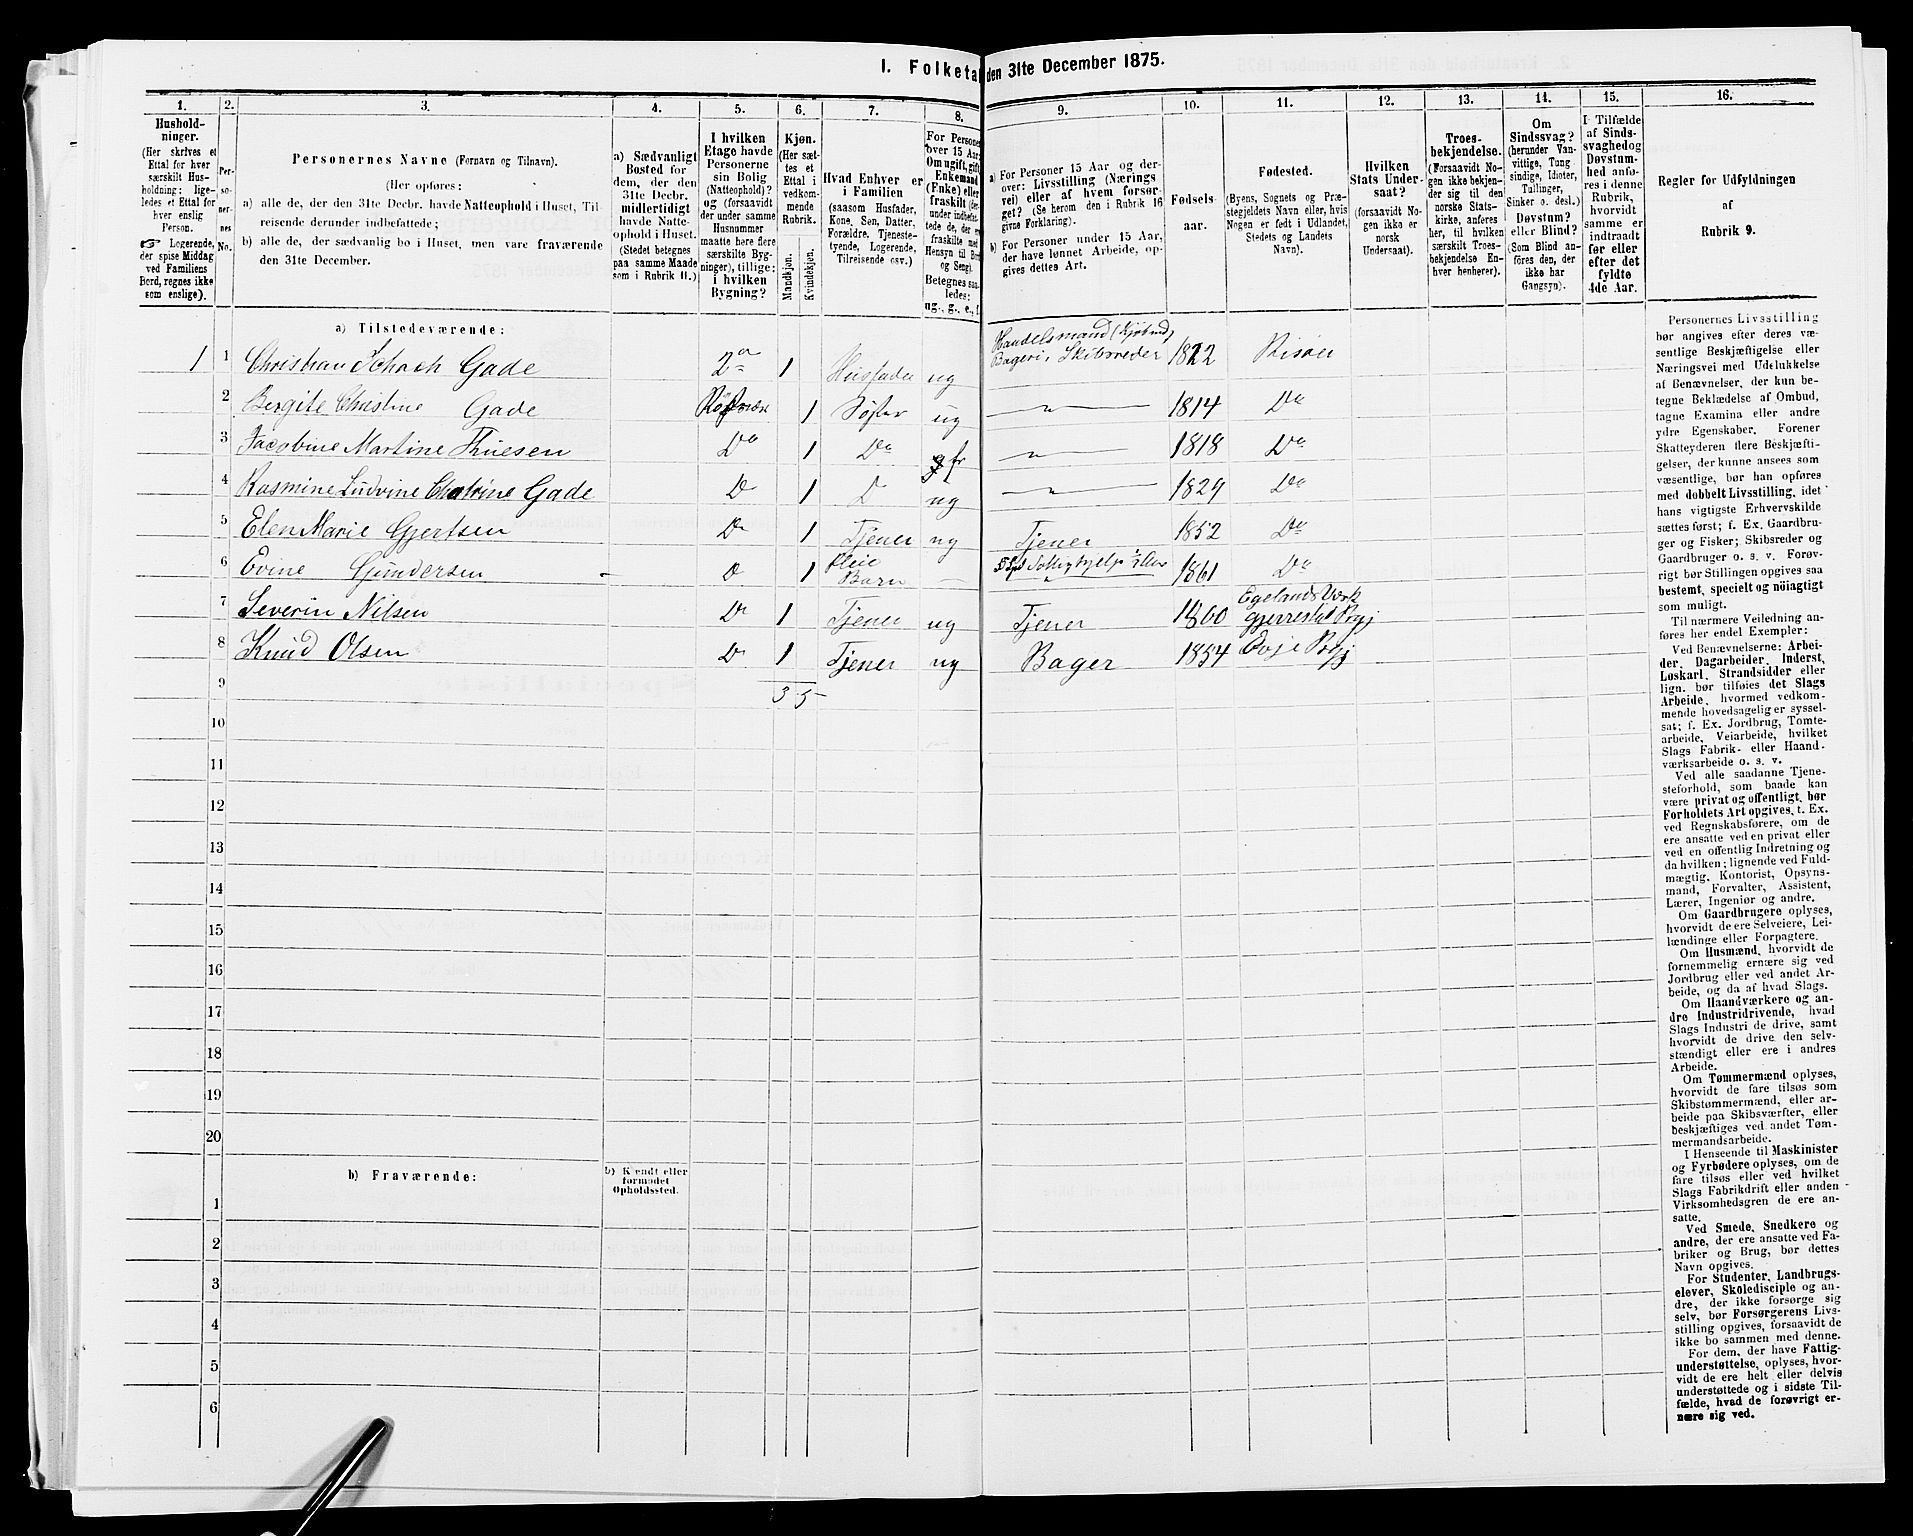 1. Folketa den 31te December 1875.
1. 2. 3. 4. 5. 6. 7. 8. 9. 10. 11. 12. 13. 14. 15. 16.
Hushold-
ninger.
(Her skrives et
Ettal for hver
særskilt Hus-
holdning; lige-
ledes et Ettal for
hver enslig
Person.
☞ Logerende,
der spise Middag
ved Familiens
Bord, regnes ikke
som enslige).
Per-
so-
ner-
nes
No.
Personernes Navne (Fornavn og Tilnavn).
(Her opføres:
a) alle de, der den 31te Decbr. havde Natteophold i Huset, Til-
reisende derunder indbefattede;
b) alle de, der sædvanlig bo i Huset, men vare fraværende
den 31te December.
a) Sædvanligt
Bosted for
dem, der den
31te Decbr.
midlertidigt
havde Natte-
ophold i Huset.
(Stedet betegnes
paa samme Maade
som i Rubrik 11.)
I hvilken
Etage havde
Personerne
sin Bolig
(Natteophold)?
og (forsaavidt
der under samme
Husnummer
maatte høre flere
særskilte Byg-
ninger), tillige:
i hvilken
Bygning?
Kjøn.
(Her sæt-
tes et
Ettal i
vedkom-
mende
Rubrik.
Mandkjøn.
Kvindekjøn.
Hvad Enhver er
i Familien
(saasom Husfader,
Kone, Søn, Datter,
Forældre, Tjeneste-
tyende, Logerende,
Tilreisende osv.)
For Persone
over 15 Aar:
Om ugift, gift
Enkemand
(Enke) eller
fraskilt (der-
under indbefat-
tede de, der er
fraskilte med
Hensyn til Bord
og Seng).
Betegnes saa-
ledes:
ug., g., e., f.
a) For Personer 15 Aar og der-
over: Livsstilling (Nærings-
vei) eller af hvem forsør-
get? (Se herom den i Rubrik 16
givne Forklaring).
b) For Personer under 15 Aar,
der have lønnet Arbeide, op-
gives dettes Art.
Fødsels-
aar.
Fødested.
(Byens, Sognets og Præ-
stegjeldets Navn eller, hvis
Nogen er født i Udlandet,
Stedets og Landets
Navn).
Hvilken
Stats Under-
saat?
(forsaavidt No-
gen ikke er
norsk
Undersaat).
Troes-
bekjendelse.
(Forsaavidt No-
gen ikke bekjen-
der sig til den
norske Stats-
kirke, anføres
her, til hvilken
særskilt Troes-
bekjendelse En-
hver henhører).
Om
Sindssvag?
(herunder Van-
vittige, Tung-
sindige, Idioter,
Tullinger,
Sinker o. desl.)
Døvstum?
eller Blind?
(Som Blind an-
føres den, der
ikke har
Gangsyn).
I Tilfælde
af Sinds-
svaghed og
Døvstum-
hed anfø-
res i denne
Rubrik,
hvorvidt
samme er
indtraadt
før eller
efter det
fyldte
4de Aar.
Regler for Udfyldningen
af
Rubrik 9.
a) Tilstedeværende:
1 1 Christian Schach Gade 2en 1 Husfader ug Handelsmand (Kjøbmd) Bageri, Skibsreder 1822 Risøer
2 Bergite Christine Gade 1 Søster ug — " — 1814 Do
3 Jacobine Martine Thuesen Do 1 Do fr — " — 1818 Do
4 Rasmine Ludvine Gade D 1 D ug — " — 1829 Do
5 Elen Marie Gjertsen Do 1 Tjener ug Tjener 1852 Do
6 Evine Gundersen D 1 Pleie Barn — 1861 Do
7 Severin Nilsen Do 1 Tjener ug Tjener 1860 Egelands Værk
8 Knud Olsen Do 1 Tjener ug Bager 1854 Evje
9 3 5
10
11
12
13
14
15
16
17
18
19
20
b) Fraværende:
b) Kjendt eller
formodet
Opholdssted.
1
2
3
4
5
6
Personernes Livsstilling
bør angives efter deres væ-
sentlige Beskjæftigelse eller
Næringsvei med Udelukkelse
af Benævnelser, der kun be-
tegne Beklædelse af Ombud,
tagne Examina eller andre
ydre Egenskaber. Forener
Skatteyderen flere Beskjæfti-
gelser, der kunne ansees som
væsentlige, bør han opføres
med dobbelt Livsstilling, idet
hans vigtigste Erhvervskilde
sættes først; f. Ex. Gaardbru-
ger og Fisker; Skibsreder og
Gaardbruger o. s. v. Forøv-
rigt bør Stillingen opgives saa
bestemt, specielt og nöiagtigt
som muligt.
Til nærmere Veiledning an-
føres her endel Exempler:
Ved Benævnelserne: Arbei-
der, Dagarbeider, Inderst,
Løskarl, Strandsidder eller
lign. bør tilføies det Slags
Arbeide, hvormed vedkom-
mende hovedsagelig er syssel-
sat; f. Ex. Jordbrug, Tomte-
arbeide, Veiarbeide, hvilket
Slags Fabrik- eller Haand-
værksarbeide o. s. v.
Ved alle saadanne Tjene-
steforhold, som baade kan
være privat og offentligt, bør
Forholdets Art opgives, t. Ex.
ved Regnskabsførere, om de
ere ansatte ved en privat eller
ved en offentlig Indretning og
da hvilken; lignende ved Fuld-
mægtig, Kontorist, Opsyns-
mand, Forvalter, Assistent,
Lærer, Ingeniør og andre.
Om Gaardbrugere oplyses,
hvorvidt de ere Selveiere, Lei-
lændinge eller Forpagtere.
Om Husmænd, hvorvidt de
fornemmelig ernære sig ved
Jordbrug eller ved andet Ar-
beide, og da af hvad Slags.
Om Haandværkere og an-
dre Industridrivende, hvad
Slags Industri de drive, samt
hvorvidt de drive den selv-
stændigt eller ere i andres
Arbeide.
Om Tømmermænd oplyses,
hvorvidt de fare tilsøs som
Skibstømmermænd, eller ar-
beide paa Skibsværfter, eller
beskjæftiges ved andet Tøm-
mermandsarbeide.
I Henseende til Maskinister
og Fyrbødere oplyses, om de
fare tilsøs eller ved hvilket
Slags Fabrikdrift eller anden
Virksomhedsgren de ere an-
satte.
Ved Smede, Snedkere og
andre, der ere ansatte ved Fa-
briker og Brug, bør dettes
Navn opgives.
For Studenter, Landbrugs-
elever, Skoledisciple og an-
dre, der ikke forsørge sig
selv, bør Forsørgerens Livs-
stilling opgives, forsaavidt de
ikke bo sammen med denne.
For dem, der have Fattig-
understøttelse, oplyses, hvor-
vidt de ere helt eller delvis
understøttede og i sidste Til-
fælde, hvad de forøvrigt er-
nære sig ved.